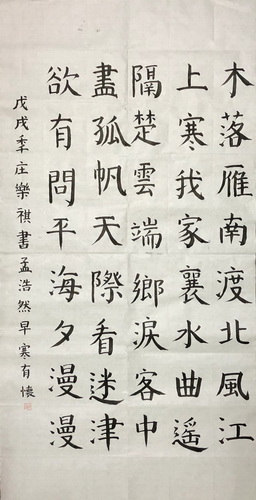 木落雁南渡北風江
上寒我家襄水曲遙
隔楚雲端鄉淚客中
盡孤帆天際看迷津
欲有問平海夕漫漫
戊戌秊庄樂祺書孟浩然早寒有懷